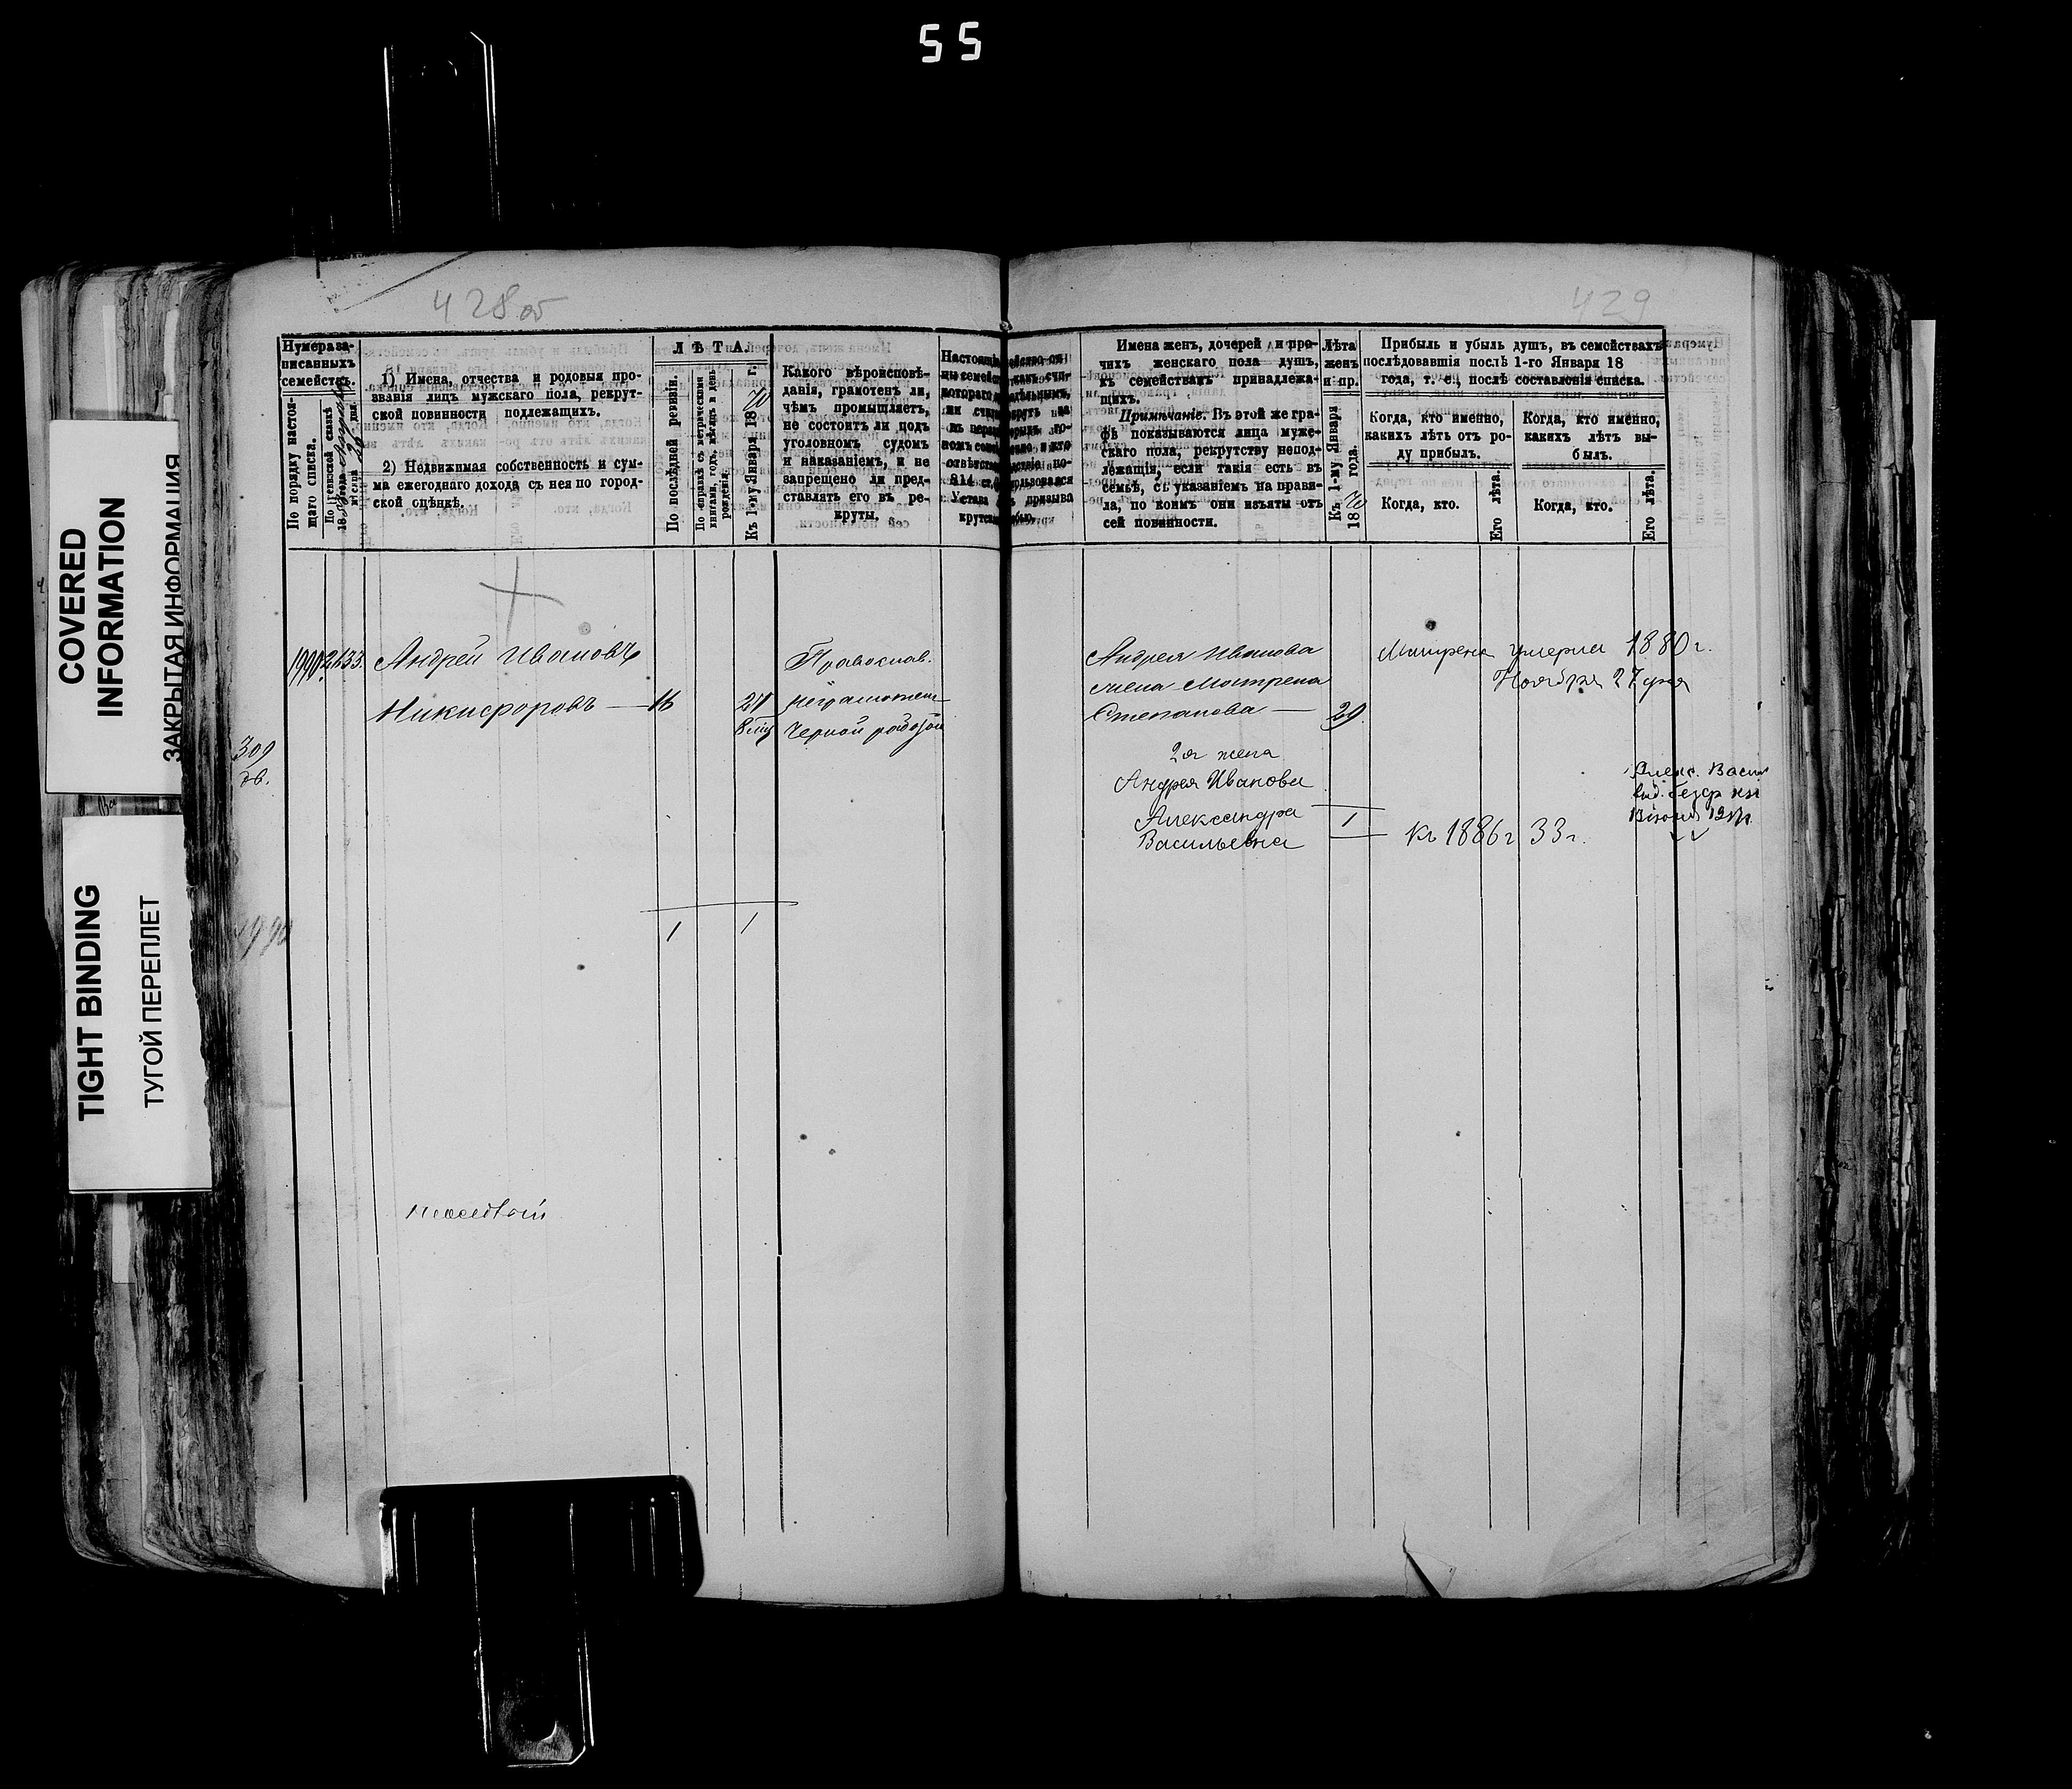 55
COVERED
INFORMATION
ЗАКРЫТАЯ ИНФОРМАЦИЯ
TIGHT BINDING
ТУГОЙ ПЕРЕПЛЕТ
428 об
429
Нумера за-
писанныхъ
семействъ.
По порядку настоя-
щаго списка.
По ревизской сказкѣ
1) Имена, отчества и родовыя про-
званія лицъ мужскаго пола, рекрут-
ской повинности подлежащихъ.
2) Недвижимая собственность и сум-
ма ежегоднаго дохода съ нея по город-
ской оцѣнкѣ.
ЛѢТА.
По послѣдней ревизіи.
По справкѣ съ метрическими
книгами, годъ, мѣсяцъ и день
рожденія.
Къ 1-му Января 1870 г.
Какого вѣроисповѣ-
данія, грамотенъ ли,
чѣмъ промышляетъ,
не состоитъ ли подъ
уголовномъ судомъ
и наказаніемъ, и не
запрещено ли пред-
ставлять его въ ре-
круты.
Имена женъ, дочерей и про-
чихъ женскаго пола душъ,
къ семействамъ принадлежа-
щихъ.
Примѣчаніе. Въ этой же гра-
фѣ показываются лица муже-
скаго пола, рекрутству непод-
лежащія, если такія есть въ
семьѣ, съ указаніемъ на прави-
ла, по коимъ они изъяты отъ
сей повинности.
Лѣта
женъ
и пр.
Къ 1-му Января
1870 года.
Прибыль и убыль душъ, въ семействахъ
послѣдовавшія послѣ 1-го Января 18
года, т. е., послѣ составленія списка.
Когда, кто именно,
какихъ лѣтъ отъ ро-
ду прибылъ.
Когда, кто.
Его лѣта.
Когда, кто именно,
какихъ лѣтъ вы-
былъ.
Когда, кто.
Его лѣта.
1990
2633.
Андрей Ивановъ
Никифоровъ — 16
Православ.
неграмотен
Черной работой
Андрея Иванова
жена Матрена
Степанова — 29.
Матрена умерла 1880 г.
Ноября 27 дня
309
дв.
2я жена
Андрея Иванова
Александра
Васильевна
1
къ 1886 г 33 г.
Алекс. Васил
1990
1
1